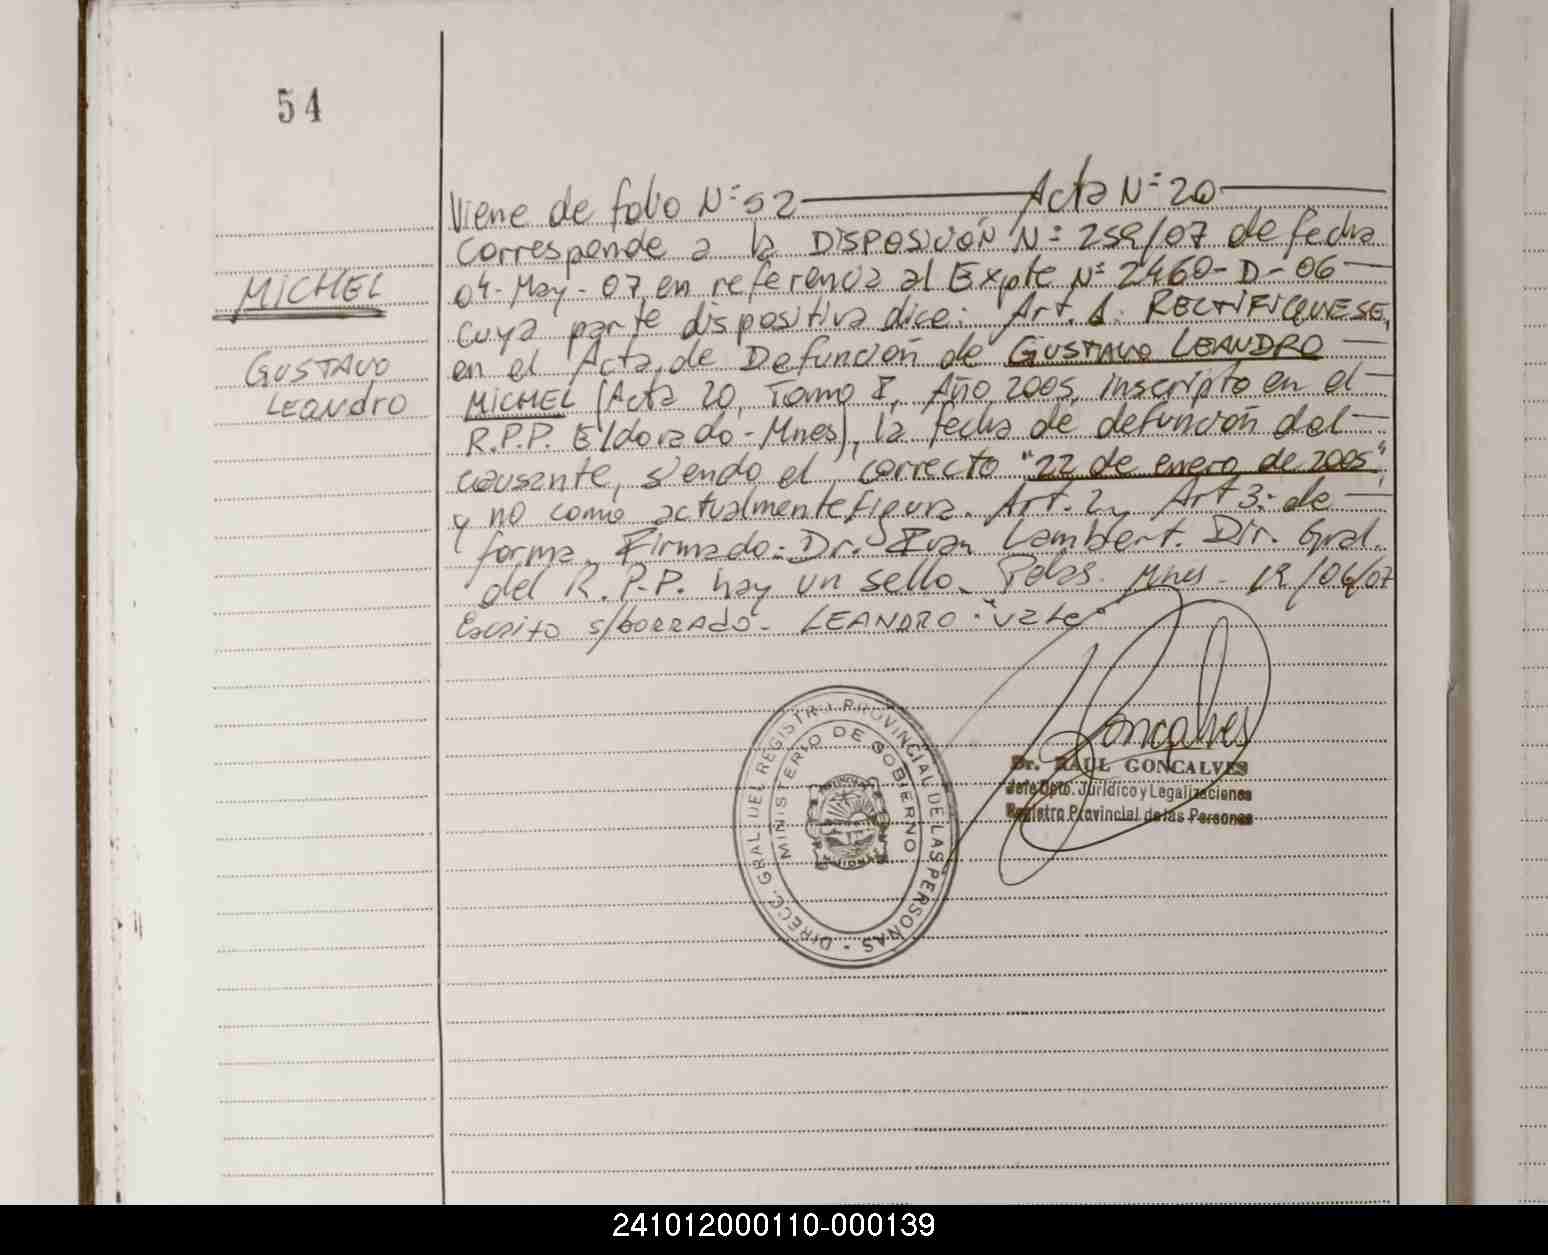 54
Viene de folio Nº 52 Acta Nº 20
Corresponde a la DISPOSICIÓN Nº 259/07 de fecha
MICHEL
04-May-07 en referencia al Expte Nº 2460-D-06
cuya parte dispositiva dice: Art. 1. RECTIFIQUESE,
GUSTAVO
en el Acta de Defunción de GUSTAVO LEANDRO
LEANDRO
MICHEL (Acta 20, Tomo I, Año 2005, inscripto en el
R.P.P. Eldorado-Mnes), la fecha de defunción del
causante, siendo el correcto "22 de enero de 2005",
y no como actualmente figura. Art. 2, Art 3: de
forma. Firmado: Dr. Ivan Lambert. Dir. Gral.
del R.P.P. hay un sello. Pdas. Mnes - 19/06/07
Escrito s/BORRADO- LEANDRO "Vale"
Goncalves
Dr. RAUL GONCALVES
Jefe Dpto. Jurídico y Legalizaciones
Registro Provincial de las Personas
DIRECC. GRAL. DEL REGISTRO PROVINCIAL DE LAS PERSONAS -
MINISTERIO DE GOBIERNO
PROVINCIA
MISIONES
241012000110-000139